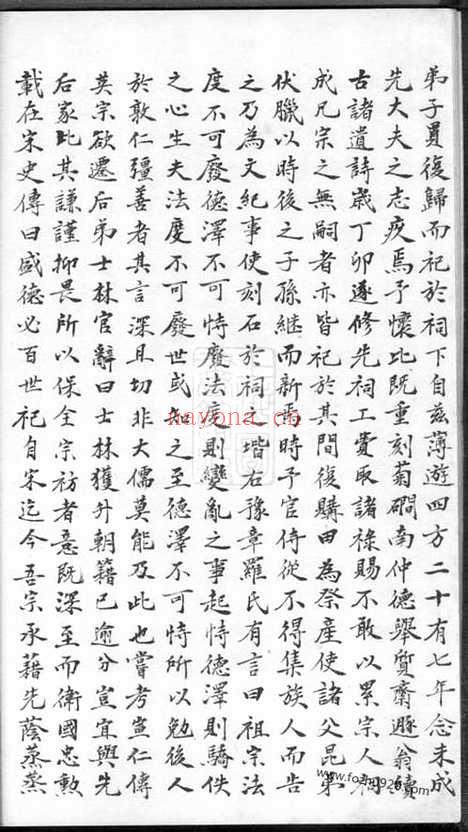 弟子員復歸而祀於祠下自茲薄遊四方二十有七年念未成
先大夫之志疚焉予懷比既重刻菊磵南仲德舉質齋遯翁續
古諸遺詩歲丁卯遂修先祠工費取諸祿賜不敢以累宗人祠
成凡宗之無嗣者亦皆祀於其間復購田為祭產使諸父昆弟
伏臘以時後之子孫繼而新焉時予官侍從不得集族人而告
之乃為文紀事使刻石於祠之堦右豫章羅氏有言曰祖宗法
度不可廢德澤不可恃廢法度則變亂之事起恃德澤則驕佚
之心生夫法度不可廢世或知之至德澤不可恃所以勉後人
於敦仁彊善者其言深且切非大儒莫能及此也嘗考宣仁傳
英宗欲遷后弟士林官辭曰士林獲升朝籍已逾分豈宜與先
后家比其謙謹抑畏所以保全宗祊者意既深至而衛國忠勲
載在宋史傳曰盛德必百世祀自宋迄今吾宗承藉先蔭蒸蒸
nayona.cn
www.fozhu920.com